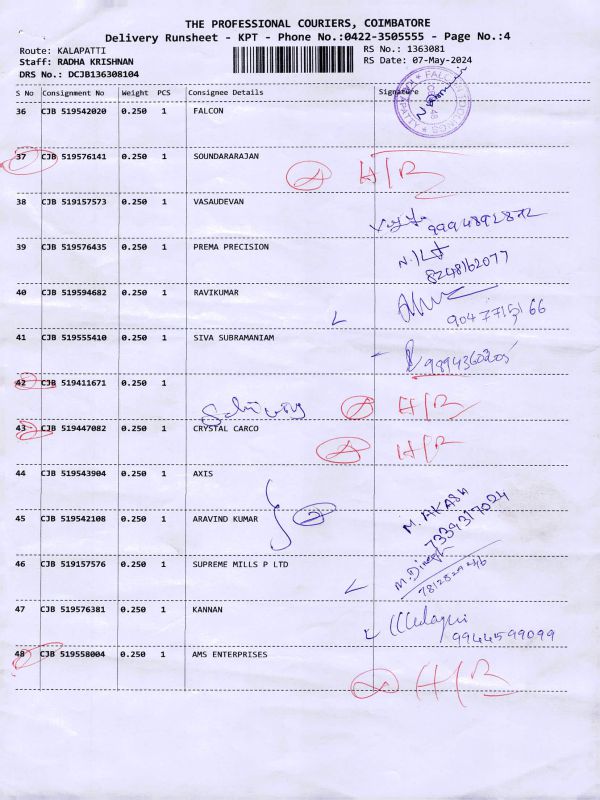 THE PROFESSIONAL COURIERS, COIMBATORE
Delivery Runsheet - KPT - Phone No.:0422-3505555 - Page No.:4
Route: KALAPATTI RS No.: 1363081
Staff: RADHA KRISHNAN RS Date: 07-May-2024
DRS No.: DCJB136308104
S No Consignment No Weight PCS Consignee Details Signature
36 CJB 519542020 0.250 1 FALCON
37 CJB 519576141 0.250 1 SOUNDARARAJAN H/R
38 CJB 519157573 0.250 1 VASAUDEVAN
9994892872
39 CJB 519576435 0.250 1 PREMA PRECISION
8248162077
40 CJB 519594682 0.250 1 RAVIKUMAR
41 CJB 519555410 0.250 1 SIVA SUBRAMANIAM
9894360205
42 CJB 519411671 0.250 1 H/R
43 CJB 519447082 0.250 1 CRYSTAL CARCO H/R
44 CJB 519543904 0.250 1 AXIS
M. AKASH
7339317024
45 CJB 519542108 0.250 1 ARAVIND KUMAR 2
M. Dinesh
46 CJB 519157576 0.250 1 SUPREME MILLS P LTD
47 CJB 519576381 0.250 1 KANNAN
9944599099
48 CJB 519558004 0.250 1 AMS ENTERPRISES
H/R